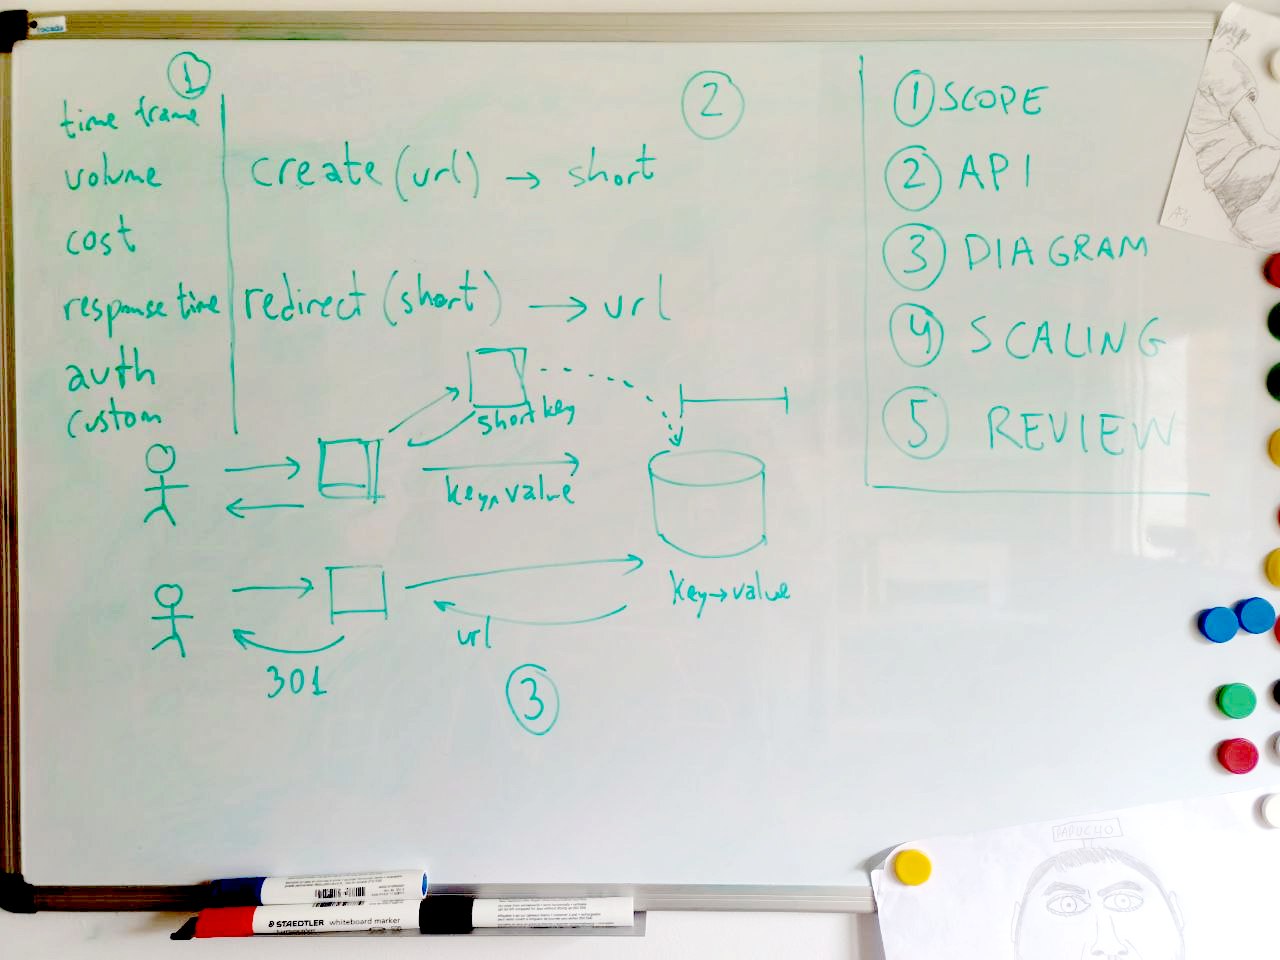 1
time frame
volume
cost
response time
auth
custom
2
create (url) → short
redirect (short) → url
short key
key, value
key→value
url
301
3
1 SCOPE
2 API
3 DIAGRAM
4 SCALING
5 REVIEW
STAEDTLER whiteboard marker